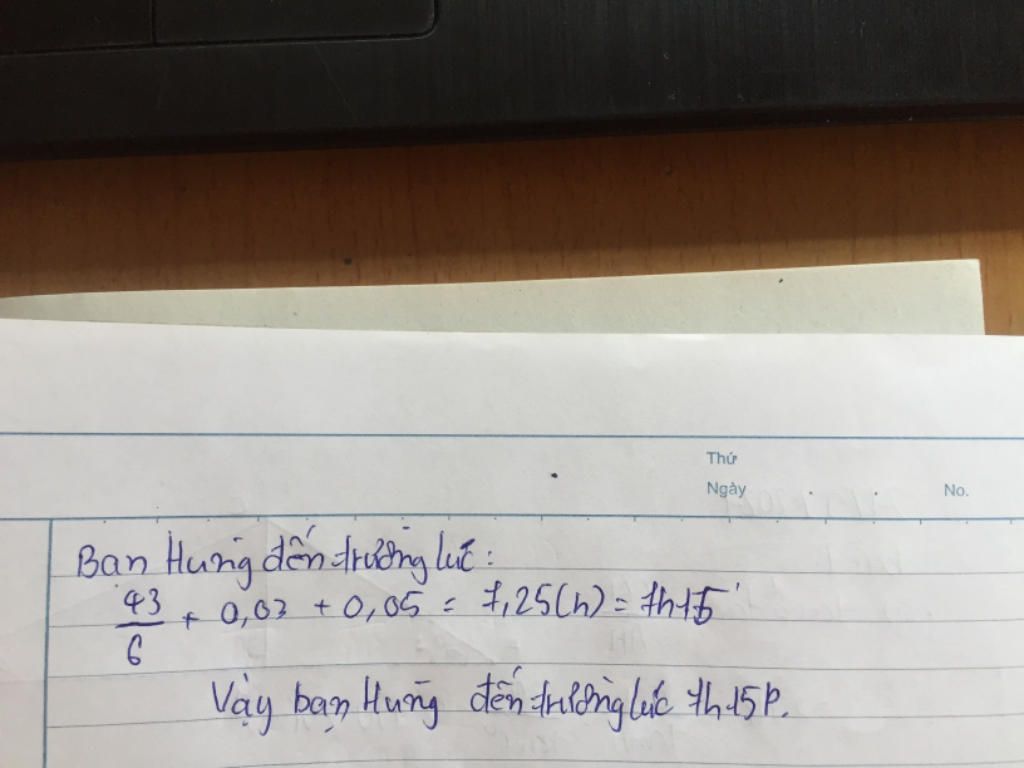 Thứ
Ngày
No.
Bạn Hưng đến trường lúc:
43/6 + 0,03 + 0,05 = 7,25(h) = 7h15'
Vậy bạn Hưng đến trường lúc 7h15p.